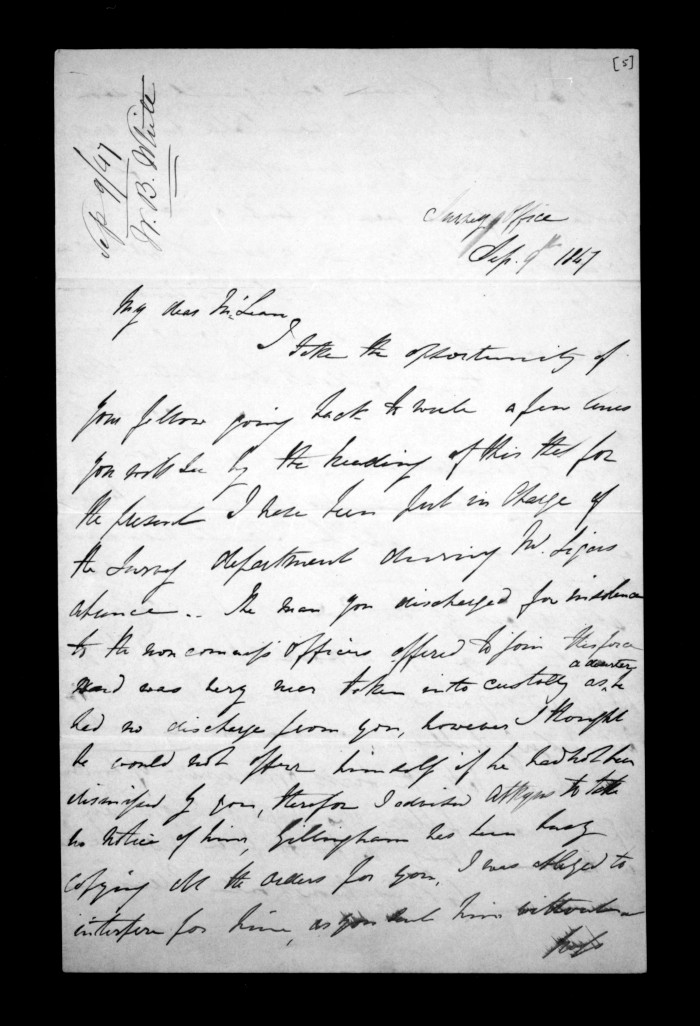 [5]
Sep 9/47
W. B. White
Survey Office
Sep. 9th 1847
My dear McLean
I take the opportunity of
your fellow going back to write a few lines
you will see by the heading of this that for
the present I have been put in Charge of
the Survey department during Mr. Ligars
absence .. The man you discharged for insolence
to the non commiss officers offered to join this force
and was very near taken into custody as a deserter, he
had no discharge from you, however I thought
he would not offer himself if he had not been
dismissed by you, therefore I advised to take
no notice of him, Gillingham has been busy
copying all the orders for you, I was obliged to
interfere for him, as you sent him without a